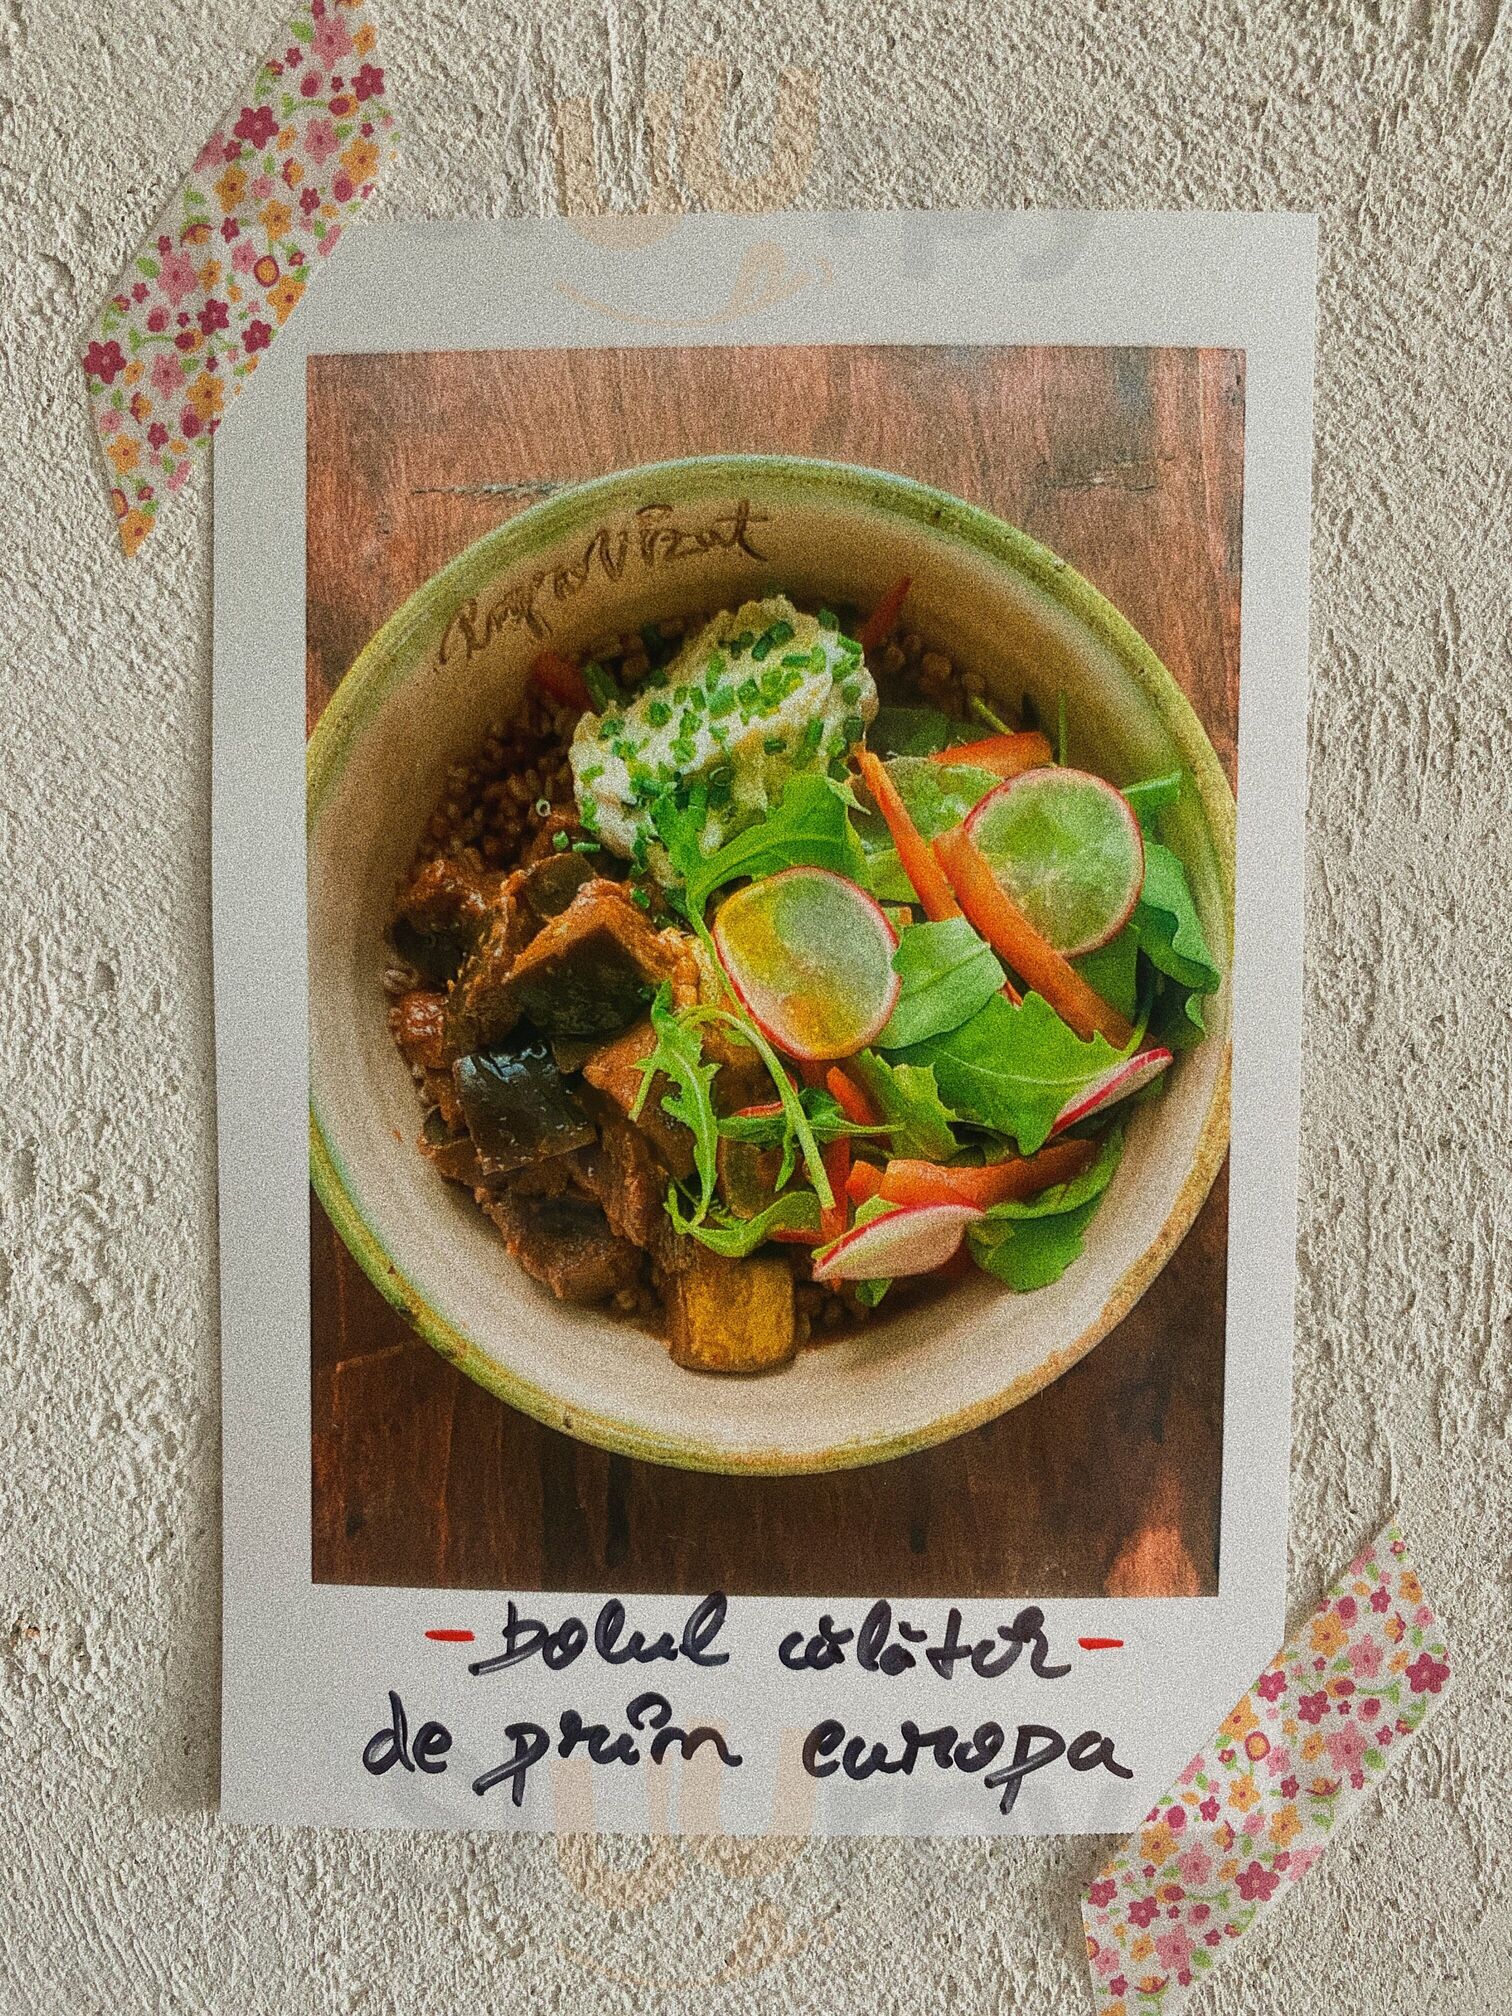 - bolul călător -
de prin europa